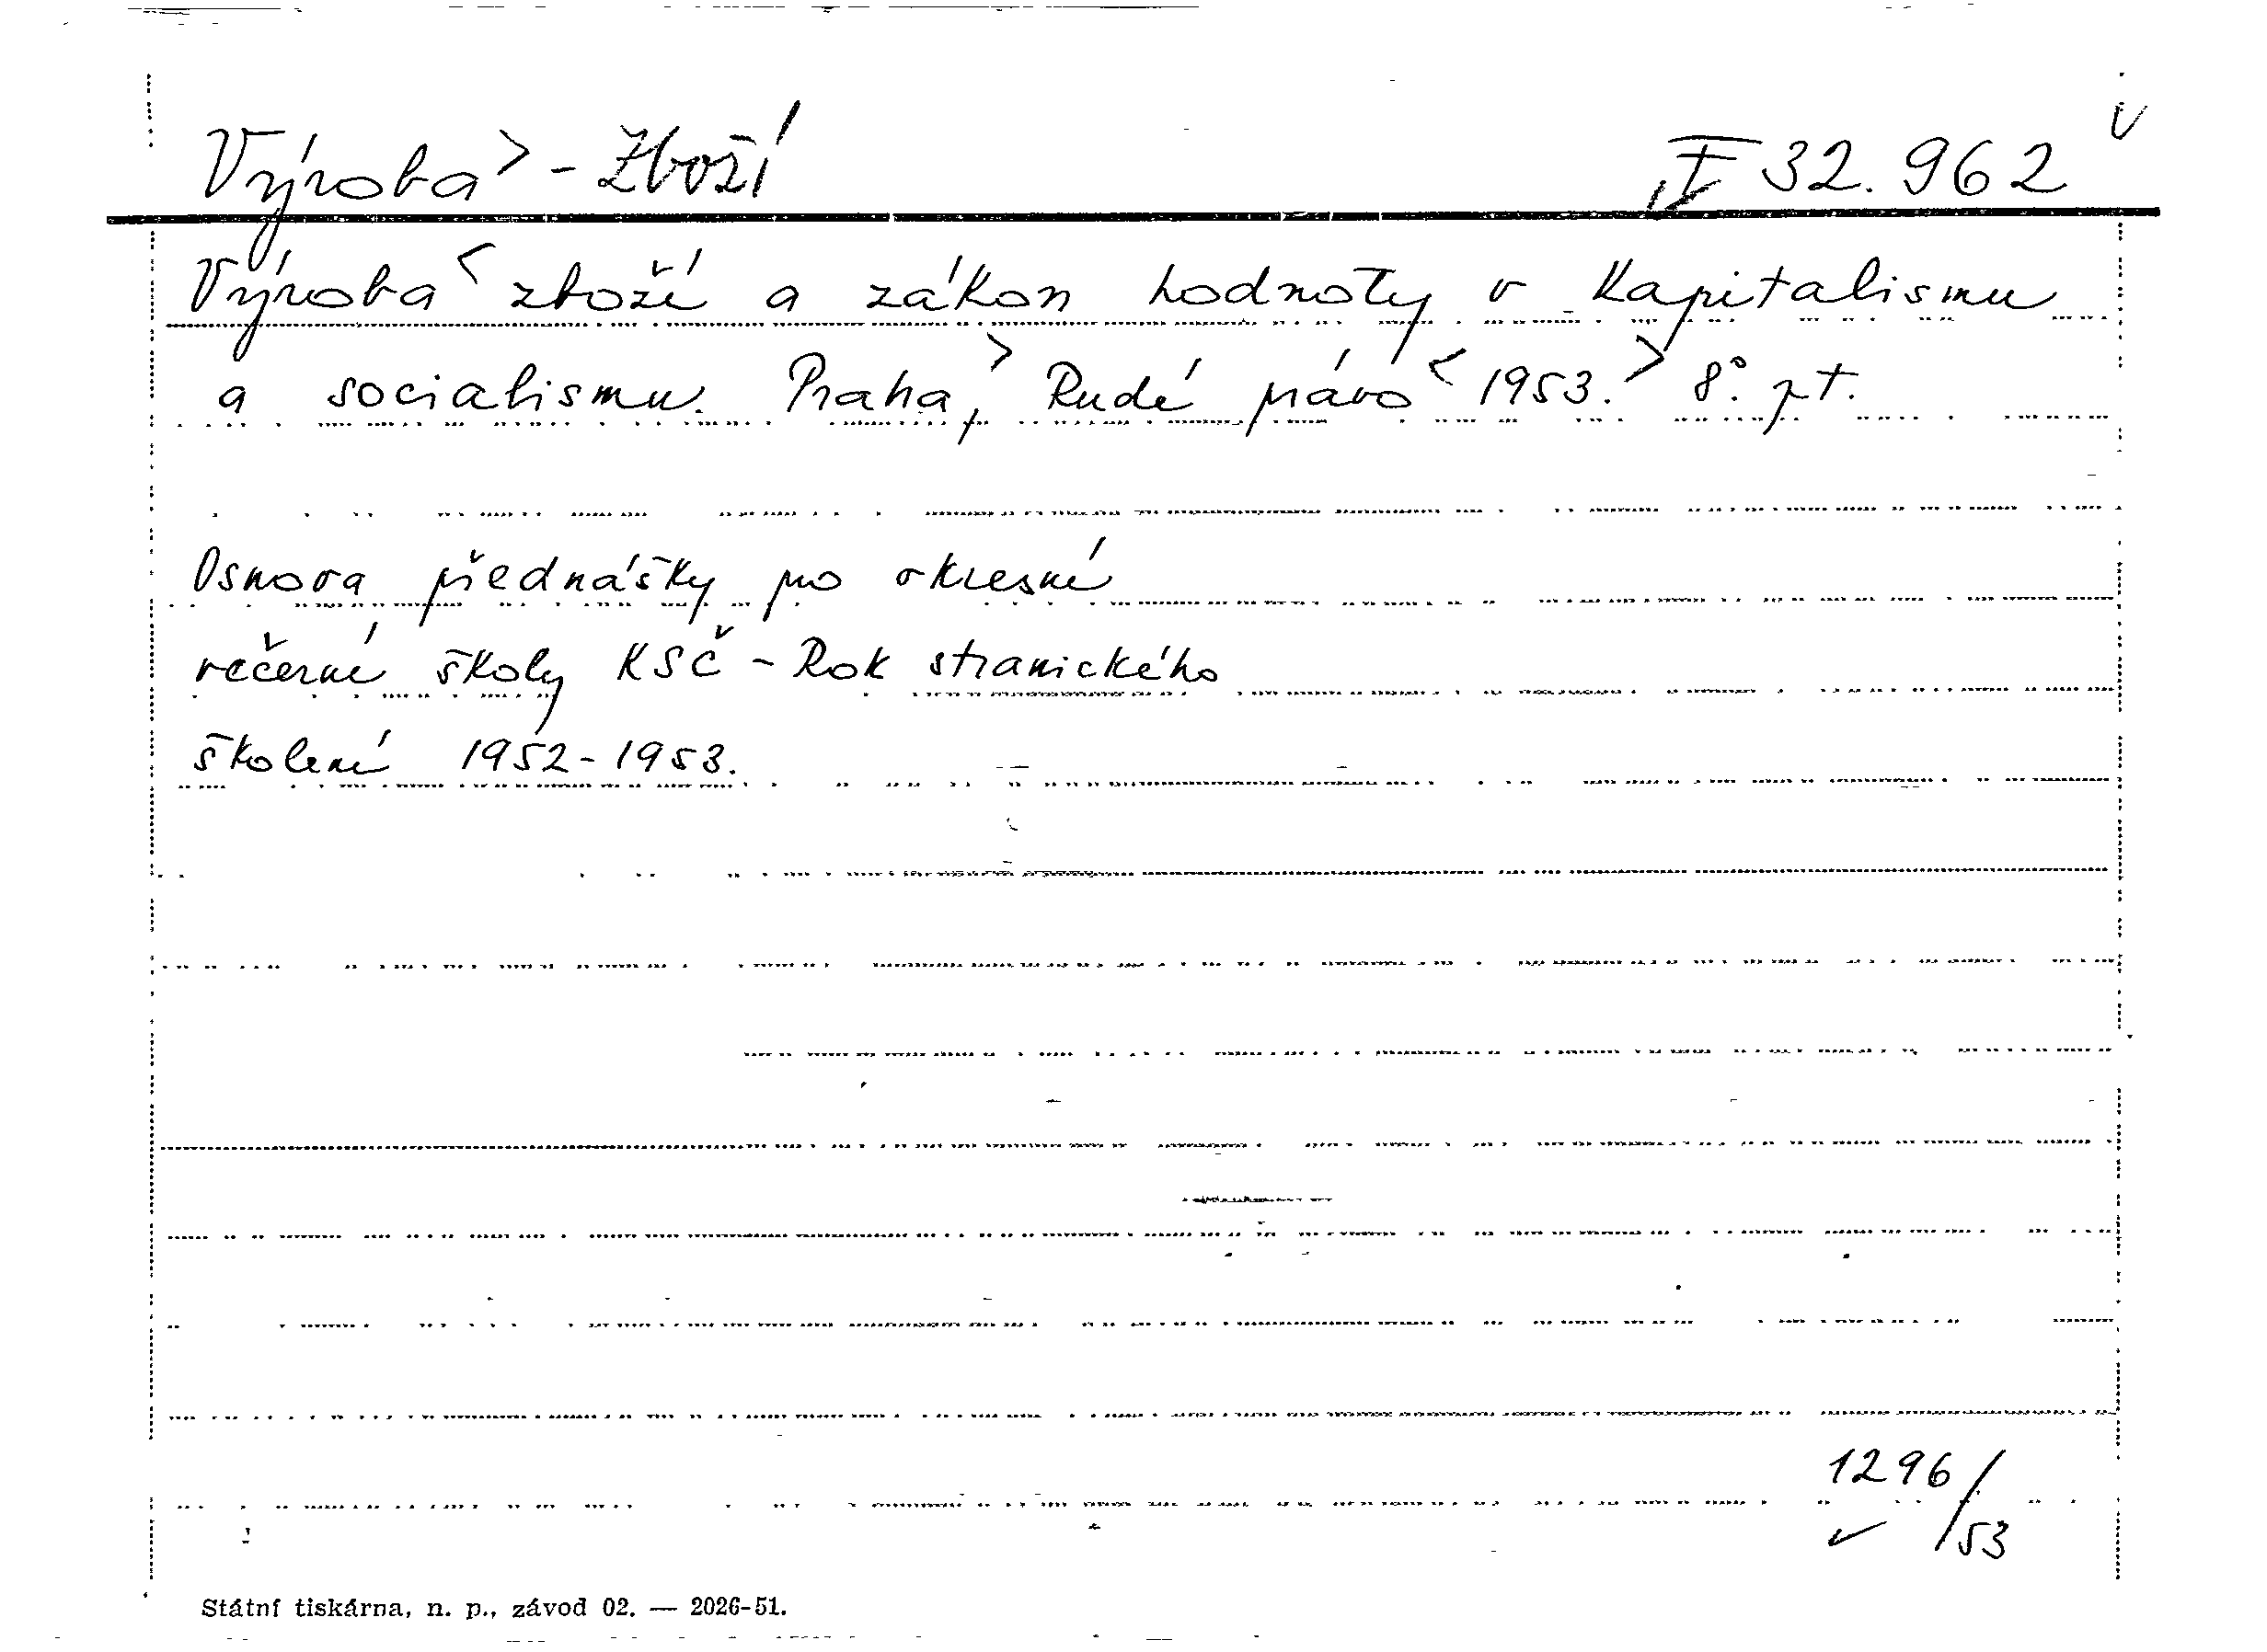 Výroba> - Zboží I 32.962
Výroba< zboží a zákon hodnoty v kapitalismu
a socialismu. Praha,> Rudé právo< 1953.> 8°. pt.
Osnova přednášky pro okresní
večerní školy KSČ - Rok stranického
školení 1952-1953.
1296/
53
Státní tiskárna, n. p., závod 02. — 2026-51.